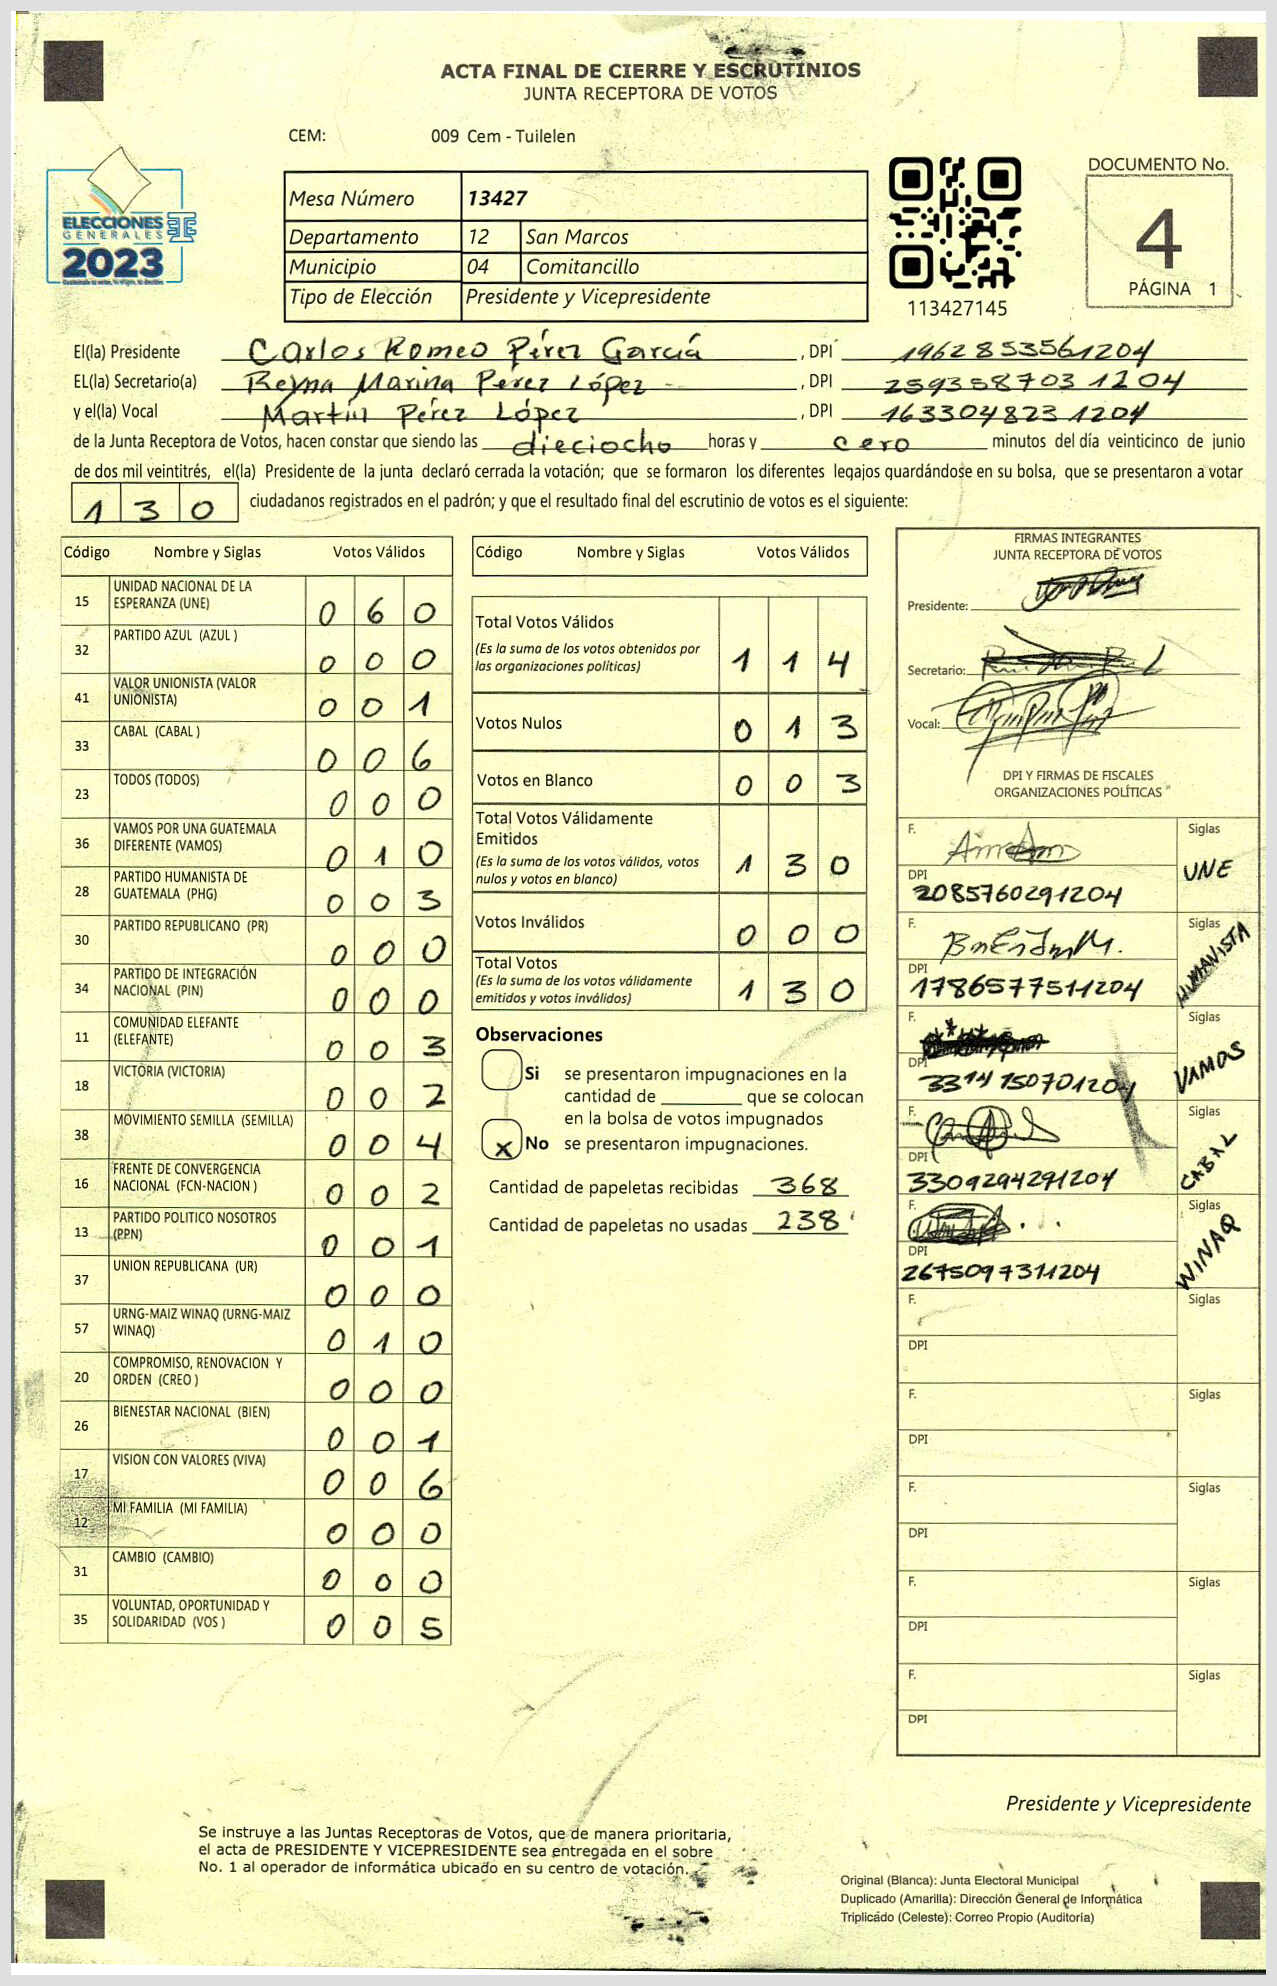 ACTA FINAL DE CIERRE Y ESCRUTINIOS
JUNTA RECEPTORA DE VOTOS
CEM: 009 Cem - Tuilelen
ELECCIONES
GENERALES
2023
Mesa Número 13427
Departamento 12 San Marcos
Municipio 04 Comitancillo
Tipo de Elección Presidente y Vicepresidente
113427145
DOCUMENTO No.
4
PÁGINA 1
El(la) Presidente Carlos Romeo Pérez García , DPI 1962853561204
EL(la) Secretario(a) Reyna Marina Pérez López , DPI 2593587031204
y el(la) Vocal Martín Pérez López , DPI 1633048231204
de la Junta Receptora de Votos, hacen constar que siendo las dieciocho horas y cero minutos del día veinticinco de junio
de dos mil veintitrés, el(la) Presidente de la junta declaró cerrada la votación; que se formaron los diferentes legajos quardándose en su bolsa, que se presentaron a votar
130 ciudadanos registrados en el padrón; y que el resultado final del escrutinio de votos es el siguiente:
Código Nombre y Siglas Votos Válidos
15 UNIDAD NACIONAL DE LA ESPERANZA (UNE) 0 6 0
32 PARTIDO AZUL (AZUL ) 0 0 0
41 VALOR UNIONISTA (VALOR UNIONISTA) 0 0 1
33 CABAL (CABAL ) 0 0 6
23 TODOS (TODOS) 0 0 0
36 VAMOS POR UNA GUATEMALA DIFERENTE (VAMOS) 0 1 0
28 PARTIDO HUMANISTA DE GUATEMALA (PHG) 0 0 3
30 PARTIDO REPUBLICANO (PR) 0 0 0
34 PARTIDO DE INTEGRACIÓN NACIONAL (PIN) 0 0 0
11 COMUNIDAD ELEFANTE (ELEFANTE) 0 0 3
18 VICTORIA (VICTORIA) 0 0 2
38 MOVIMIENTO SEMILLA (SEMILLA) 0 0 4
16 FRENTE DE CONVERGENCIA NACIONAL (FCN-NACION ) 0 0 2
13 PARTIDO POLITICO NOSOTROS (PPN) 0 0 1
37 UNION REPUBLICANA (UR) 0 0 0
57 URNG-MAIZ WINAQ (URNG-MAIZ WINAQ) 0 1 0
20 COMPROMISO, RENOVACION Y ORDEN (CREO ) 0 0 0
26 BIENESTAR NACIONAL (BIEN) 0 0 1
17 VISION CON VALORES (VIVA) 0 0 6
12 MI FAMILIA (MI FAMILIA) 0 0 0
31 CAMBIO (CAMBIO) 0 0 0
35 VOLUNTAD, OPORTUNIDAD Y SOLIDARIDAD (VOS ) 0 0 5
Código Nombre y Siglas Votos Válidos
Total Votos Válidos
(Es la suma de los votos obtenidos por
las organizaciones políticas) 1 1 4
Votos Nulos 0 1 3
Votos en Blanco 0 0 3
Total Votos Válidamente
Emitidos
(Es la suma de los votos válidos, votos
nulos y votos en blanco) 1 3 0
Votos Inválidos 0 0 0
Total Votos
(Es la suma de los votos válidamente
emitidos y votos inválidos) 1 3 0
Observaciones
Si se presentaron impugnaciones en la
cantidad de ________ que se colocan
en la bolsa de votos impugnados
x No se presentaron impugnaciones.
Cantidad de papeletas recibidas 368
Cantidad de papeletas no usadas 238
FIRMAS INTEGRANTES
JUNTA RECEPTORA DE VOTOS
Presidente:
Secretario:
Vocal:
DPI Y FIRMAS DE FISCALES
ORGANIZACIONES POLÍTICAS
F. Siglas
DPI UNE
2085760291204
F. Siglas
DPI HUMANISTA
1786577511204
F. Siglas
DPI VAMOS
3314150701204
F. Siglas
DPI CABAL
3309294291204
F. Siglas
DPI WINAQ
2675097311204
F. Siglas
DPI
F. Siglas
DPI
F. Siglas
DPI
F. Siglas
DPI
F. Siglas
DPI
Presidente y Vicepresidente
Se instruye a las Juntas Receptoras de Votos, que de manera prioritaria,
el acta de PRESIDENTE Y VICEPRESIDENTE sea entregada en el sobre
No. 1 al operador de informática ubicado en su centro de votación.
Original (Blanca): Junta Electoral Municipal
Duplicado (Amarilla): Dirección General de Informática
Triplicado (Celeste): Correo Propio (Auditoría)